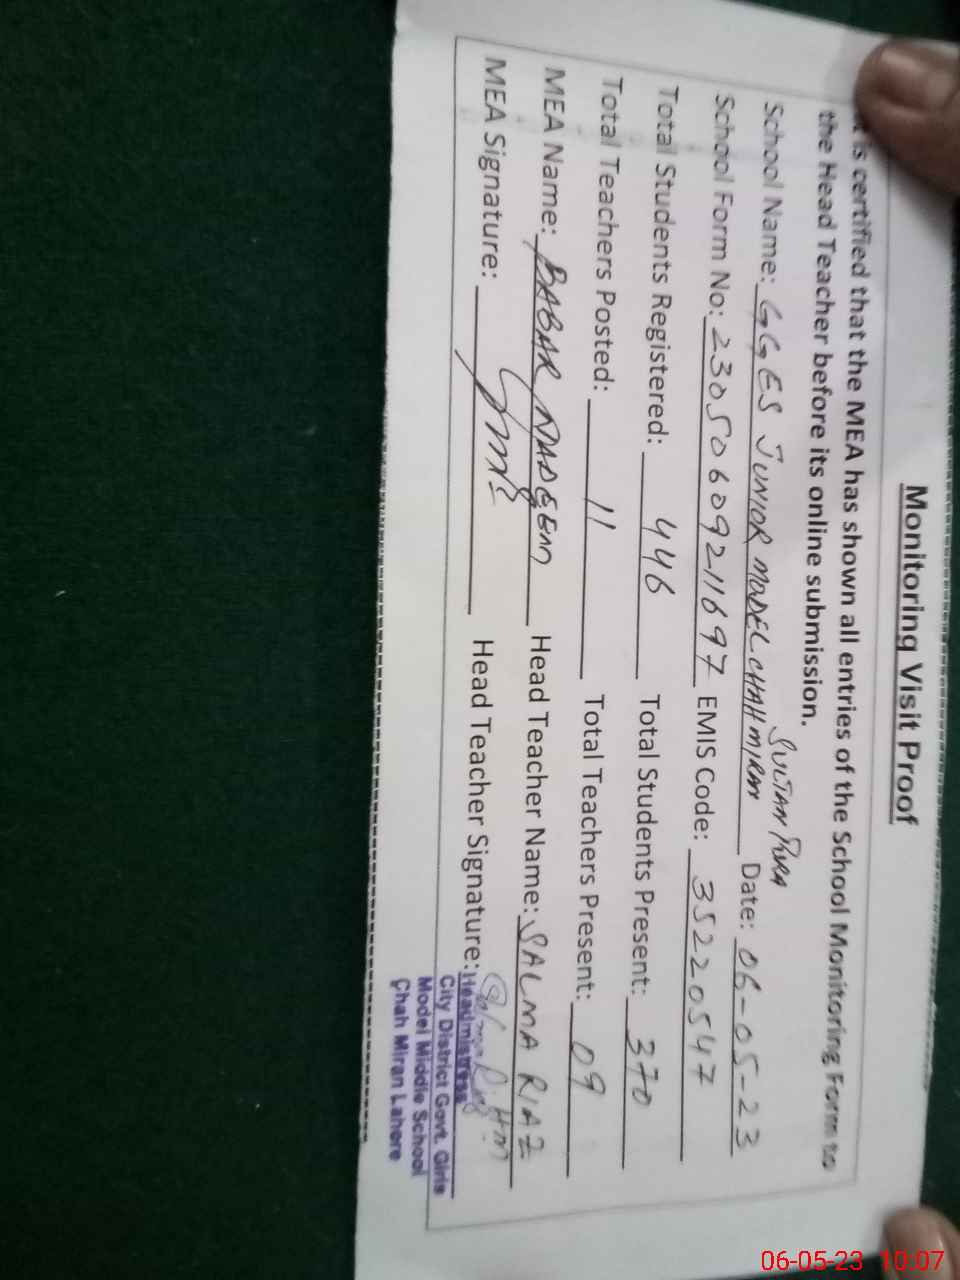 Monitoring Visit Proof
It is certified that the MEA has shown all entries of the School Monitoring Form to
the Head Teacher before its online submission.
SULTAN PURA
School Name: GGES JUNIOR MODEL CHAH MIRAN Date: 06-05-23
School Form No: 2305060921 1697 EMIS Code: 35220547
Total Students Registered: 446 Total Students Present: 370
Total Teachers Posted: 11 Total Teachers Present: 09
MEA Name: BABAR NADEEM Head Teacher Name: SALMA RIAZ
MEA Signature: Head Teacher Signature:
Headmistress
City District Govt. Girls
Model Middle School
Chah Miran Lahore
06-05-23 10:07